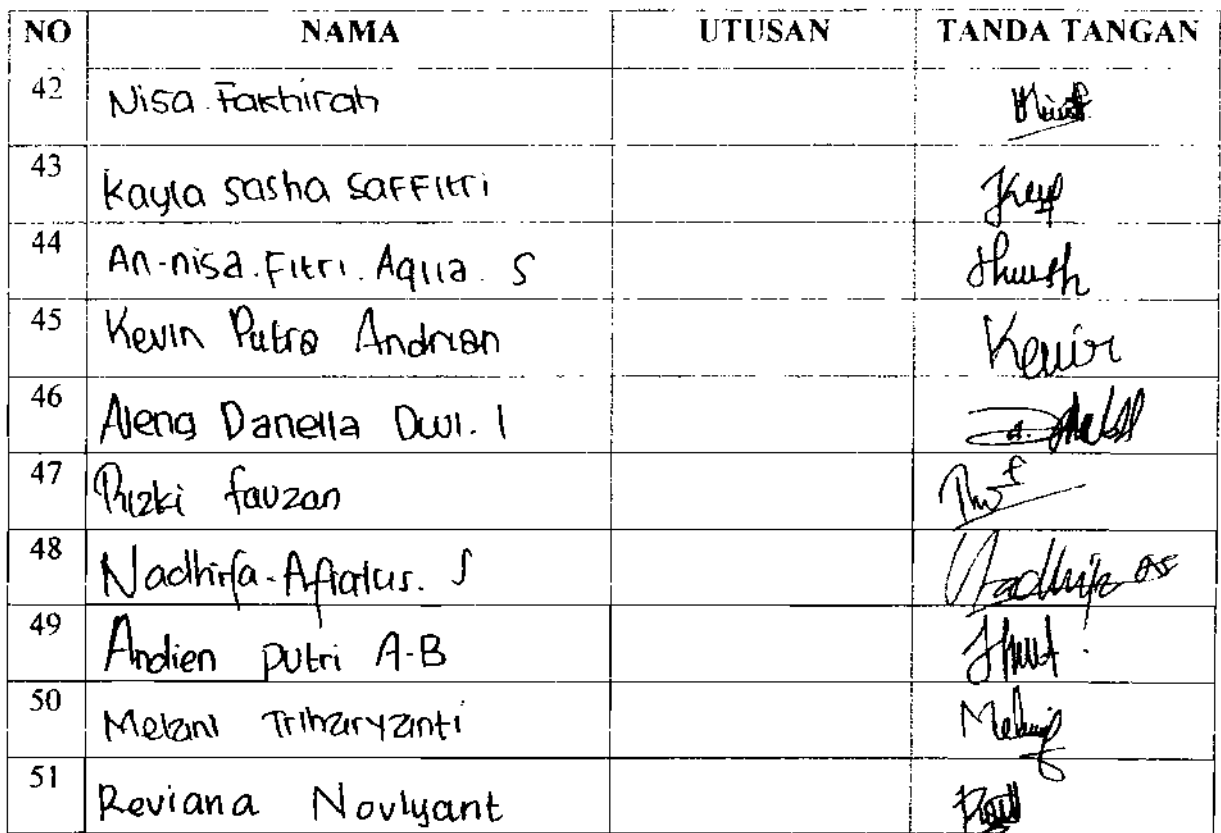 NO NAMA UTUSAN TANDA TANGAN
42 Nisa. Fakhirah
43 Kayla Sasha Saffitri
44 An-nisa. Fitri. Aqila. S
45 Kevin Putra Andrian Kevin
46 Aleng Danella Dwi. I
47 Rizki fauzan
48 Nadhifa. Afiatus. S
49 Andien putri A-B
50 Melani Triharyanti
51 Reviana Novlyant